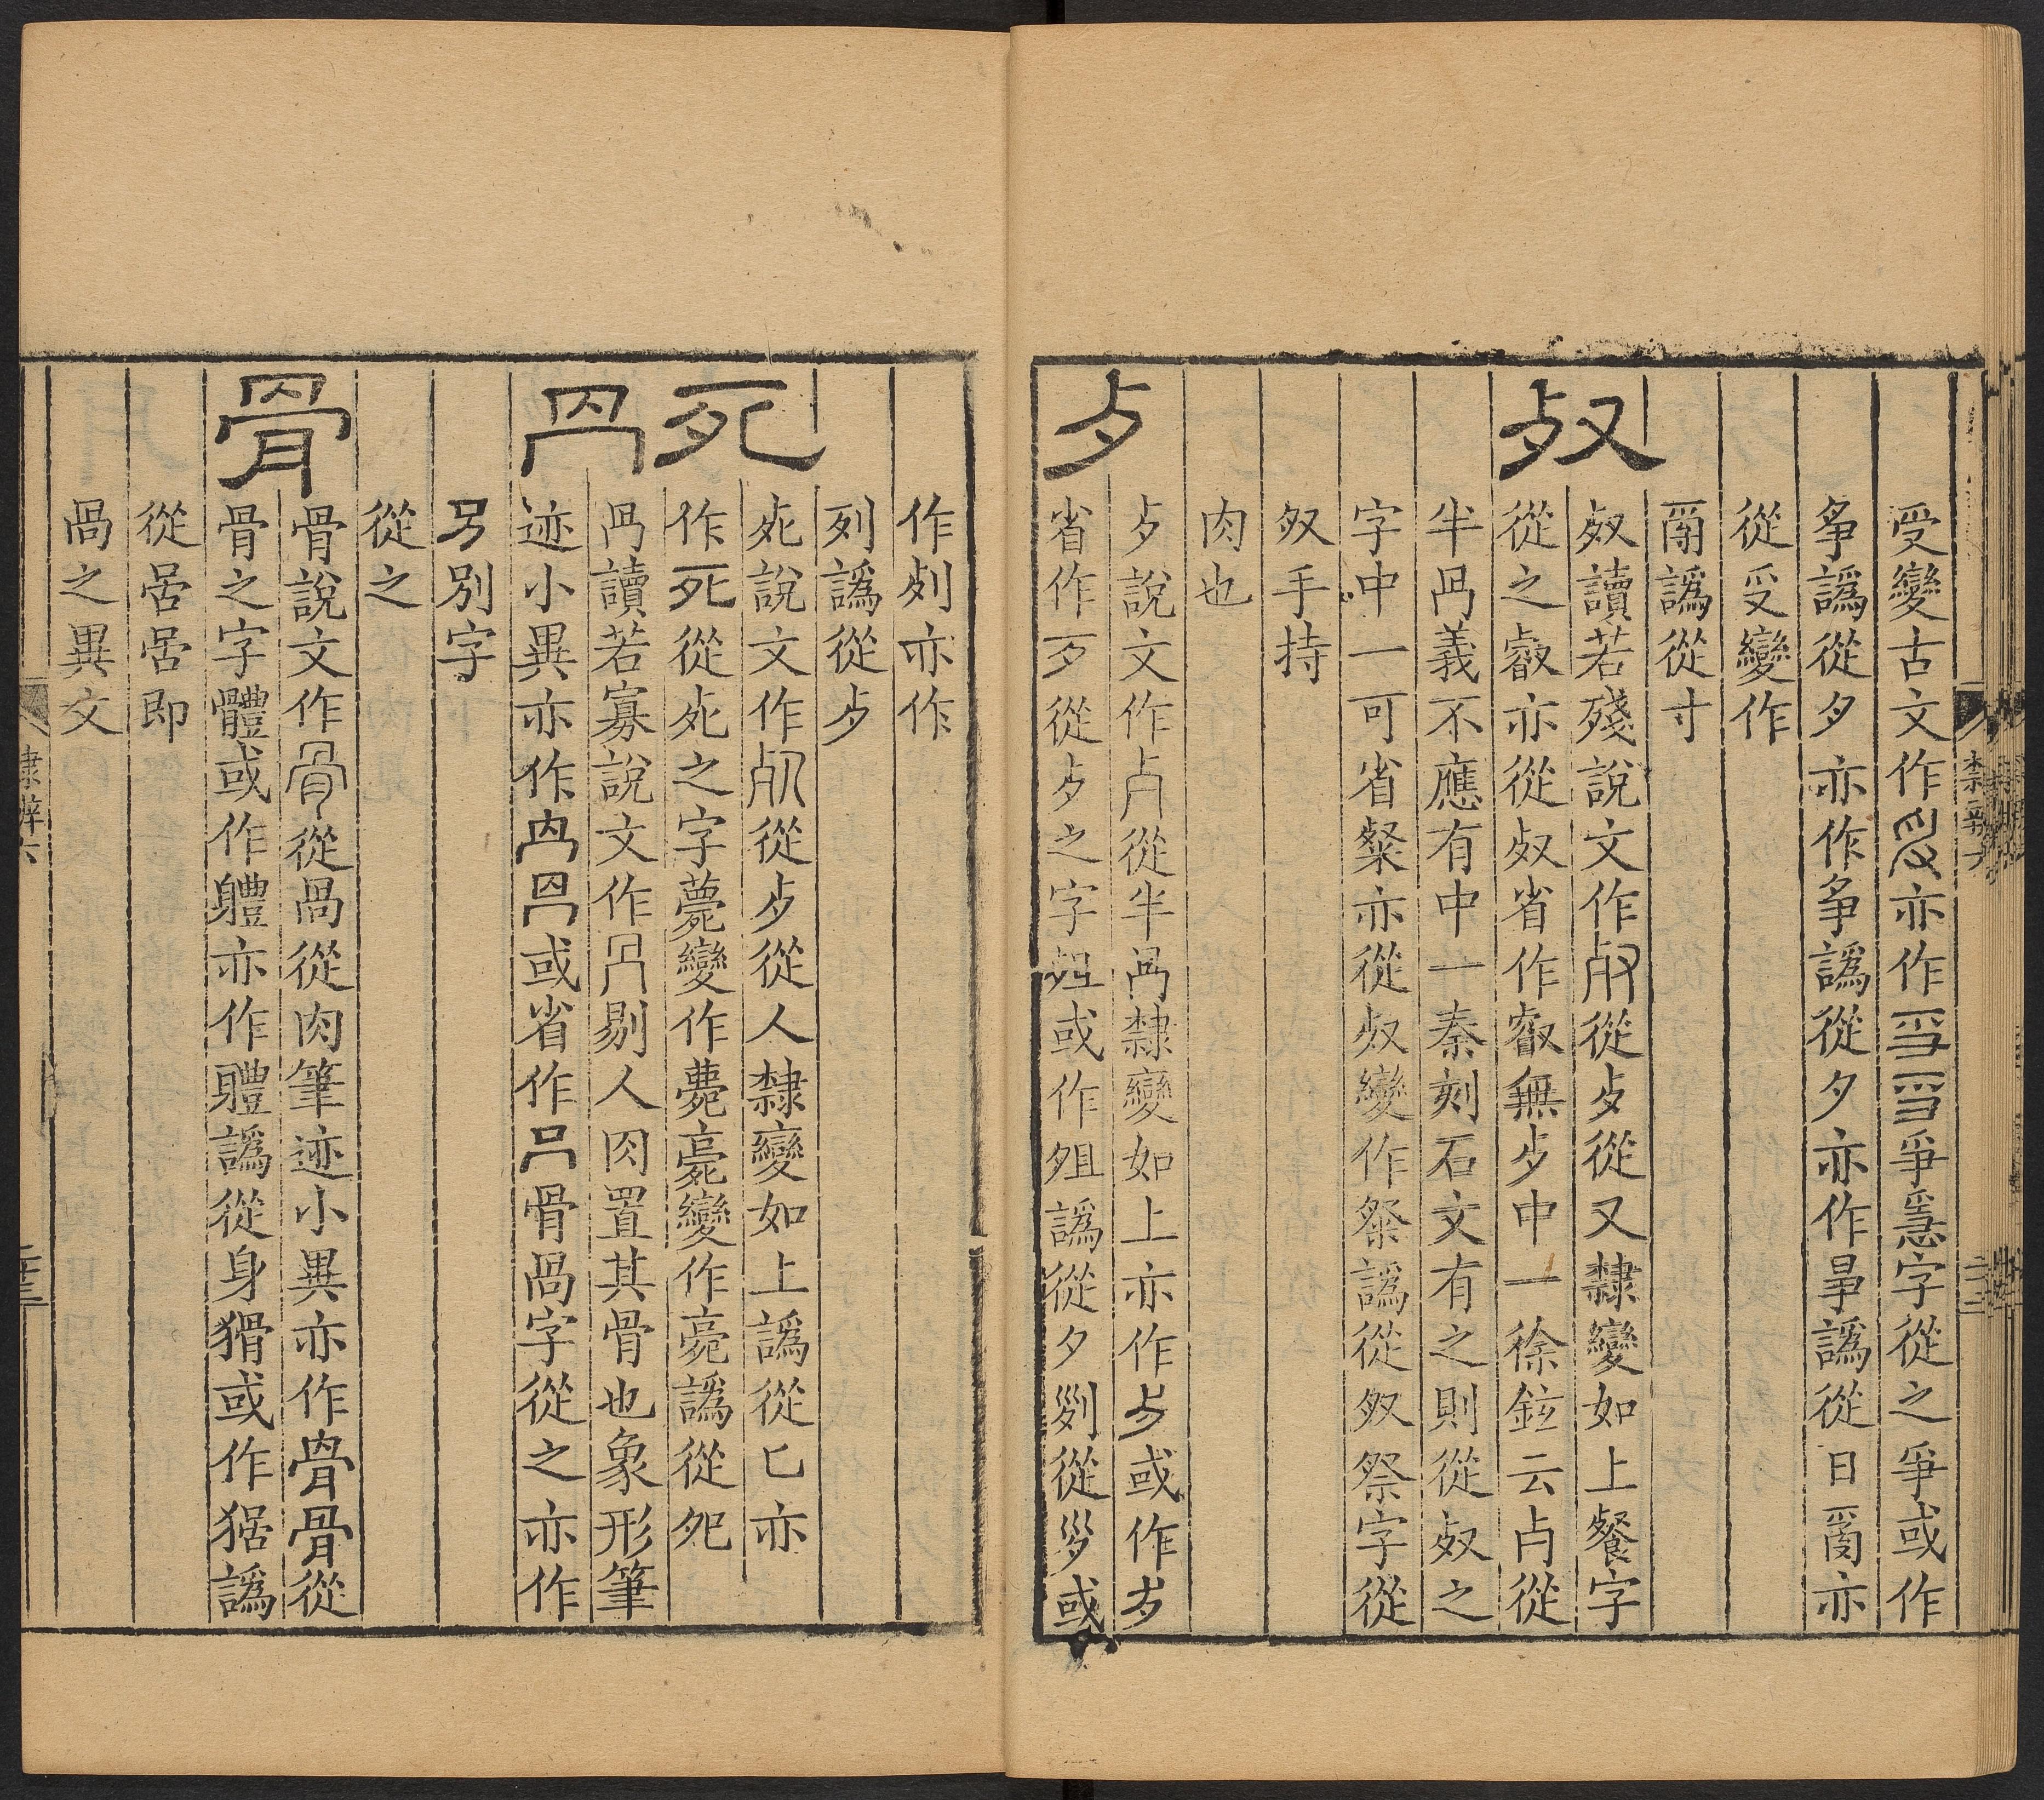 受變古文作𠬪亦作爭𤔔字從之爭或作
爭譌從夕亦作爭譌從夕亦作譌從日𤔔亦
從受變作
𤔔譌從寸
𣦼
𣦼讀若殘說文作𣦼從歺從又隸變如上餐字
從之叡亦從𣦼省作叡無歺中一徐鉉云占從
半冎義不應有中一秦刻石文有之則從𣦼之
字中一可省粲亦從𣦼變作粲譌從奴祭字從
奴手持
肉也
歺
歺說文作歺從半冎隸變如上亦作歺或作歺
省作歹從歺之字殂或作殂譌從夕𠛱從𡿪或
作𠛱亦作
列譌從歺
死
死說文作𣦸從歺從人隸變如上譌從匕亦
作死從死之字薨變作薨薨變作薨譌從死
冎
冎讀若寡說文作冎剔人肉置其骨也象形筆
迹小異亦作冎冎或省作骨咼字從之亦作
叧別字
從之
骨
骨說文作骨從冎從肉筆迹小異亦作骨骨從
骨之字體或作軆亦作軆譌從身猾或作猾譌
從咼咼即
咼之異文
隸辨六
二十三